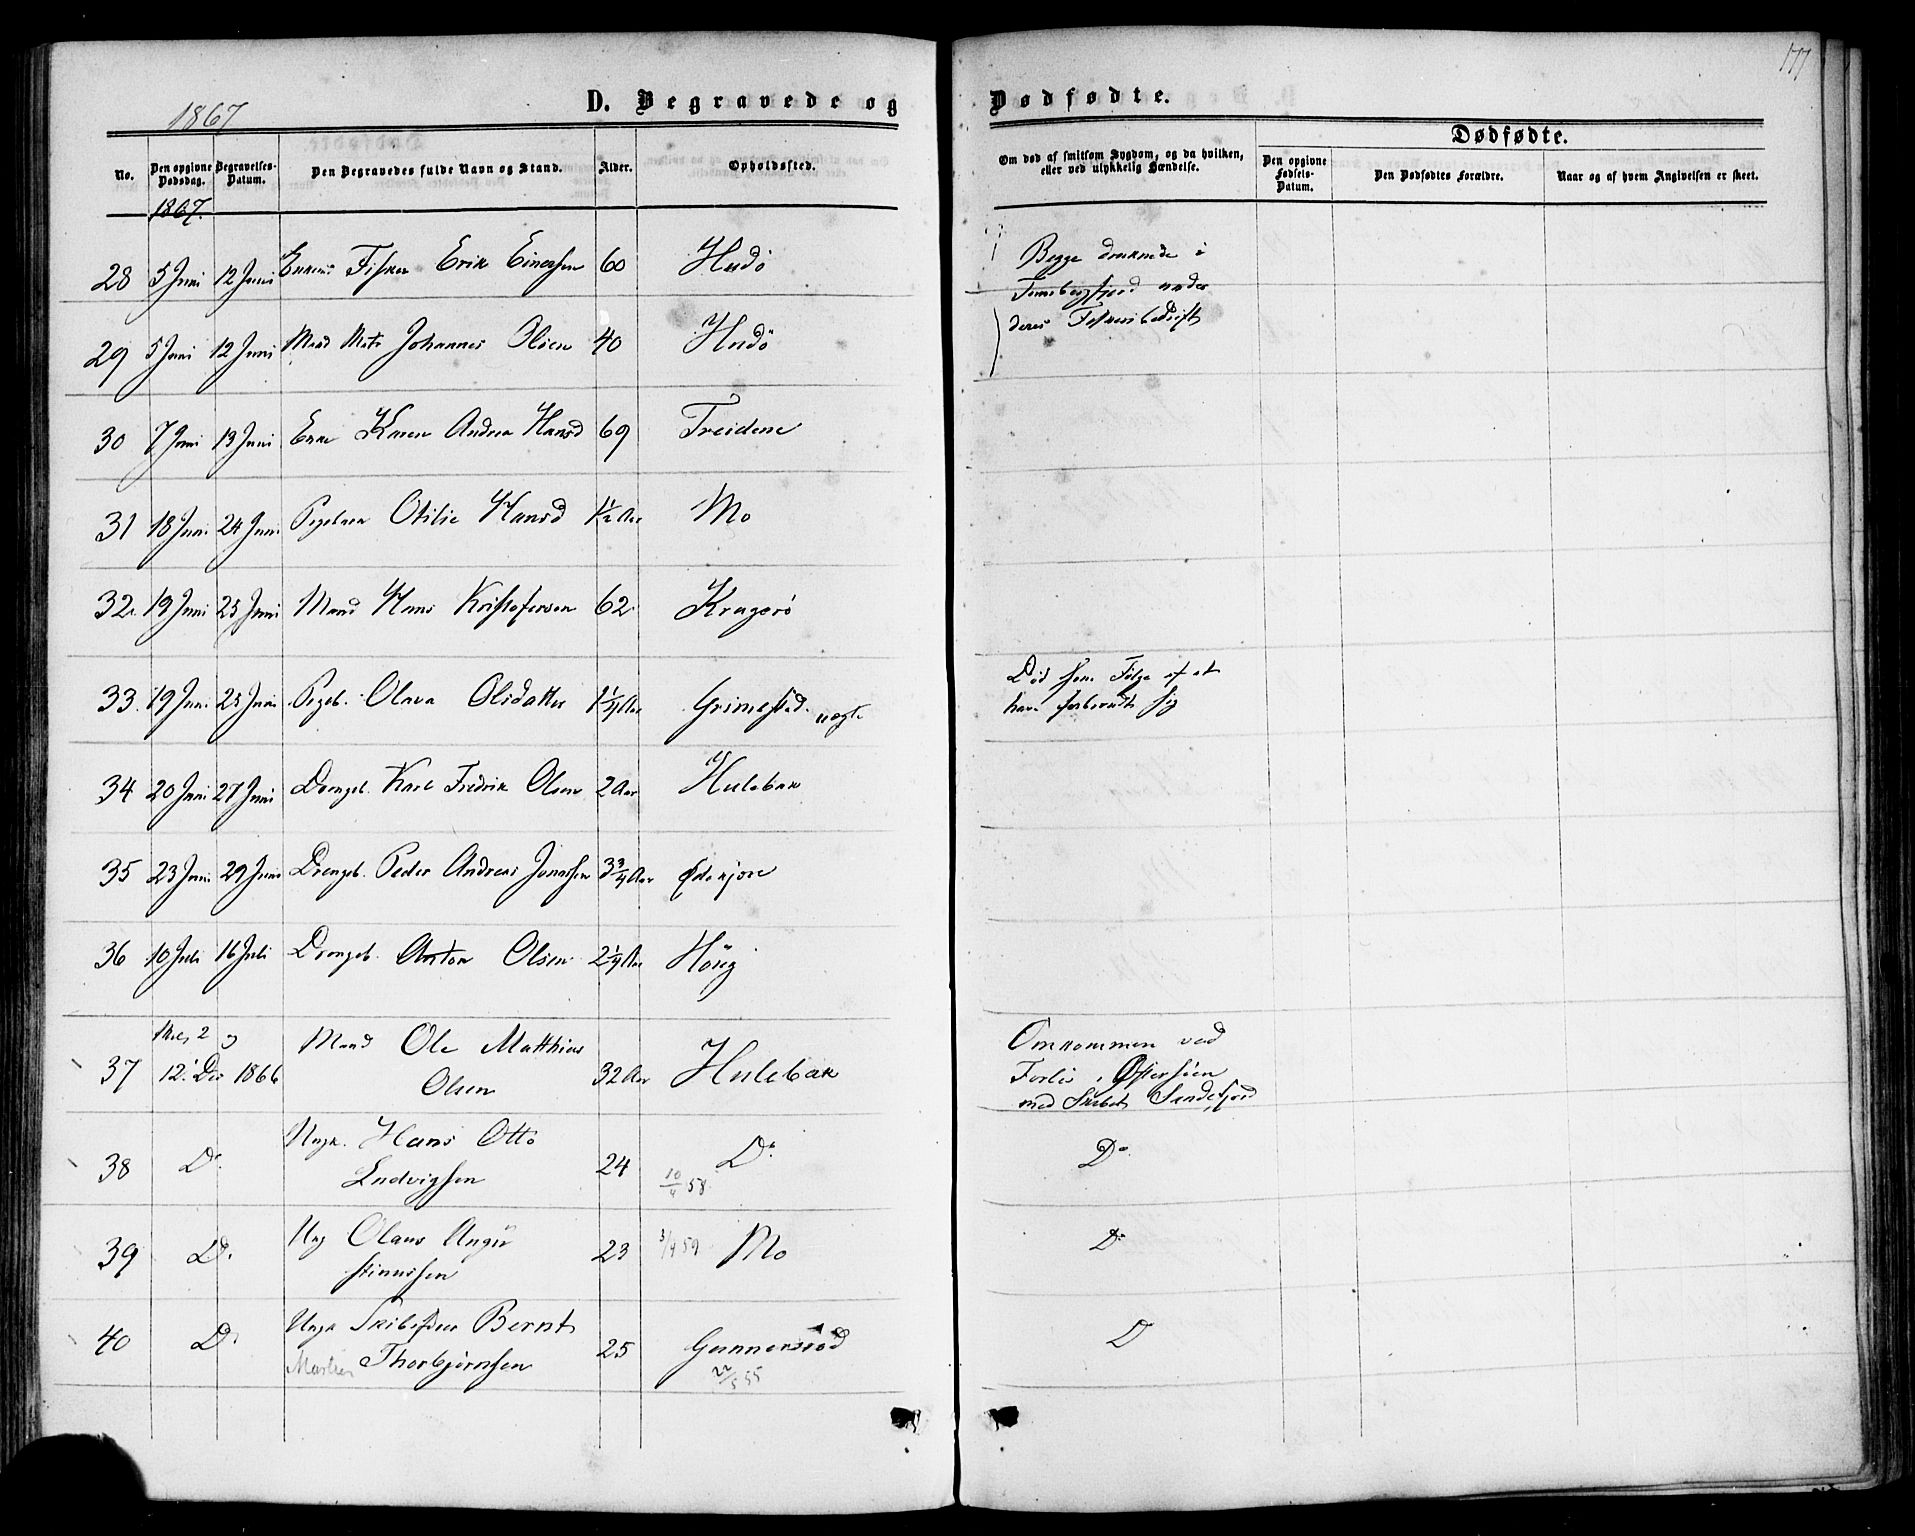 177
1867
D. Begravede og Dødfødte.
No.
Den opgivne Dødsdag.
Begravelses-Datum.
Den Begravedes fulde Navn og Stand.
Alder.
Opholdssted.
Om død af smitsom Sygdom, og da hvilken, eller ved ulykkelig Hændelse.
Dødfødte.
Den opgivne Fødsels-Datum.
Den Dødfødtes Forældre.
Naar og af hvem Angivelsen er skeet.
1867.
28 5 Juni 12 Juni Fisker Erik Einersen 60 Hudö
Begge druknede i
Tønsbergfjord under
deres Fiskeribedrift
29 5 Juni 12 Juni Mand Johannes Olsen 40 Hudö
30 7 Juni 13 Juni Enke Karen Andrea Hansd 69 Treidene
31 18 Juni 24 Juni Pigebarn Otilie Hansd 1½ Aar Mo
32. 19 Juni 25 Juni Mand Hans Kristofersen 62 Kragerö
33. 19 Juni 25 Juni Pigeb. Olava Olsdatter 1¼ Aar Grimestad
Död som Følge af at
have forbrændt sig
34 20 Juni 27 Juni Drengeb. Karl Fredrik Olsen 2 Aar Hulebak
35 23 Juni 29 Juni Drengeb. Peder Andreas Jonassen 3¾ Aar Ødekjære
36 10 Juli 16 Juli Drengeb. Anton Olsen 2¼ Aar Höug
37 12 Dec 1866 Mand Ole Matthias
Olsen 32 Aar Hulebak
Omkommen ved
Forlis i Østersöen
med Skibet Sandefjord
38 Do. Ungk. Hans Otto
Ludvigsen 24 Do.
10/4 58
Do.
39 D. Ung Olaus Augu
stinussen 23 3/4 59 Mo
Do
40 D. Ungk Bernt
Martin Thorbjørnsen 25 Gunnersröd
22/5 55
D